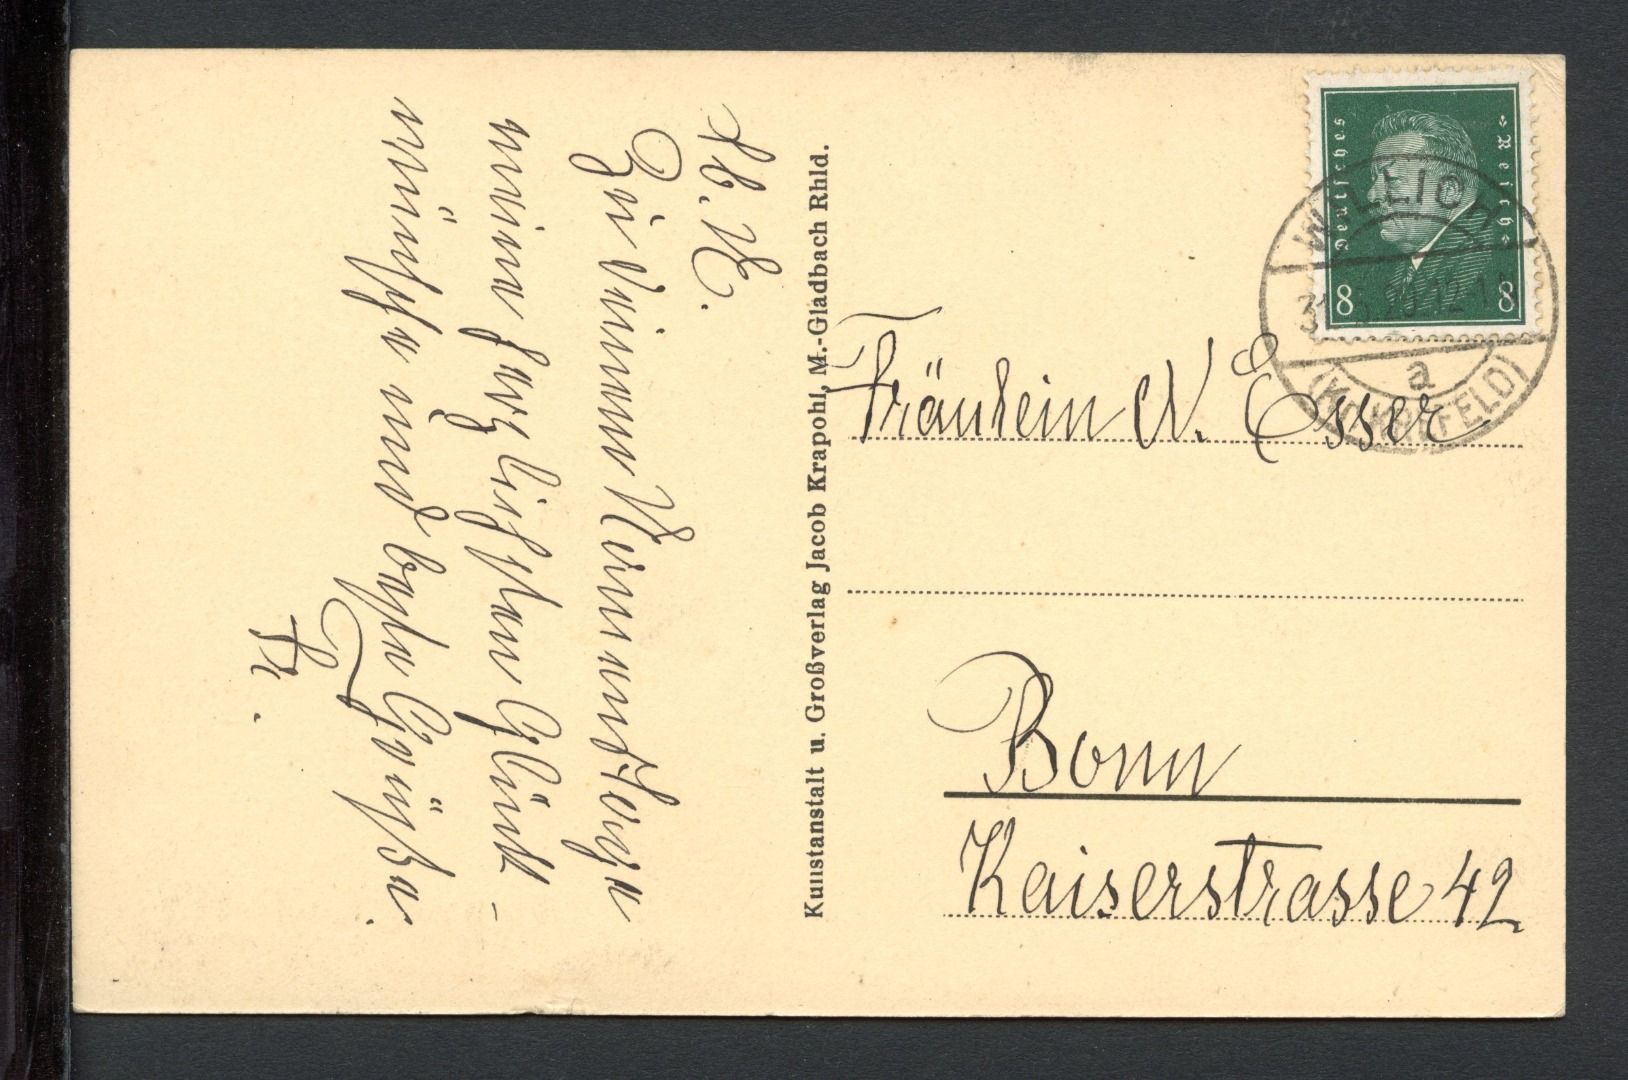 Lb. N.
Zu Deinem Namenstage
meine herzlichsten Glück-
wünsche und beste Grüße.
Fr.
Kunstanstalt u. Großverlag Jacob Krapohl, M.-Gladbach Rhld.
Deutsches Reich
8 8
WILLICH
12-1
a
(KR. KREFELD)
Fräulein N. Esser
Bonn
Kaiserstrasse 42